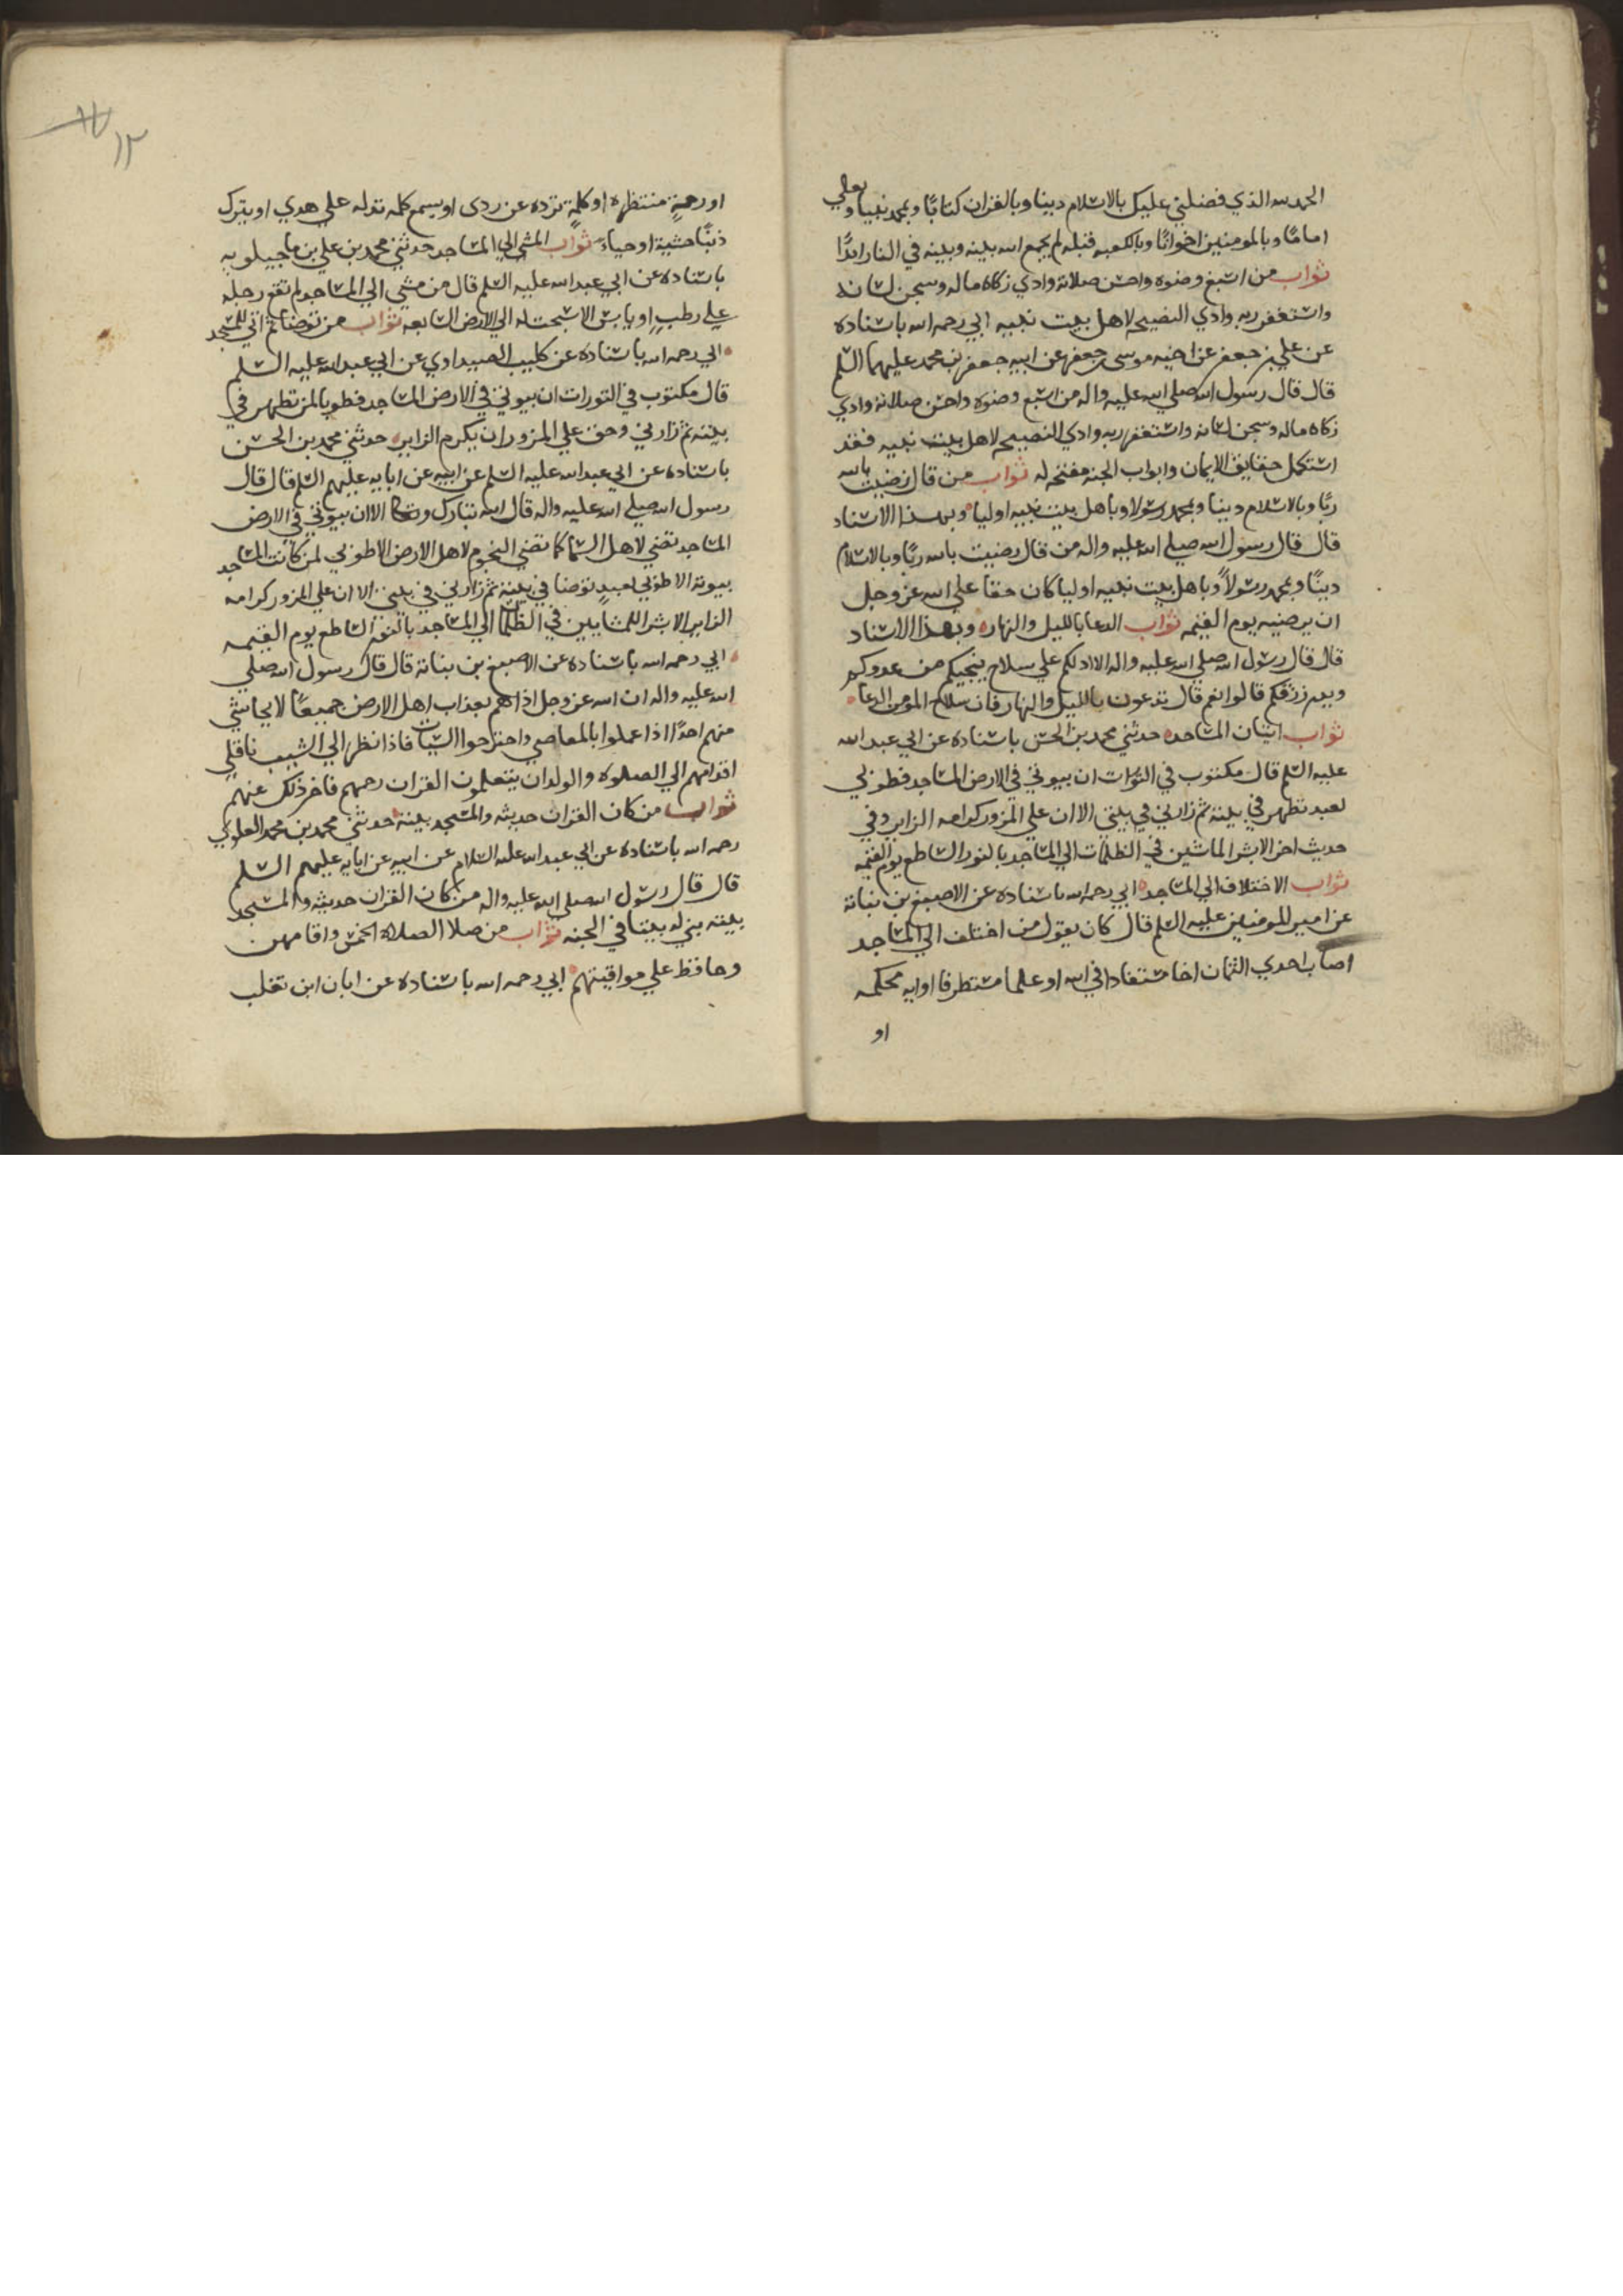 الحمد لله الذي فضلني عليك بالاسلام دينا وبالقران كتابًا وبمحمد نبيا وبعلي
امامًا وبالمومنين اخوانًا وبالكعبه قبله لم يجمع الله بينه وبينه في النار ابدًا
ثواب من اسبغ وضوه واحسن صلاته وادي زكاه ماله وسجن لسانه
واستغفر ربه وادي النصيحه لاهل بيت نبيه ابي رحمه الله باسناده
عن علي بن جعفر عن اخيه موسى بن جعفر عن ابيه جعفر بن محمد عليهما السلم
قال قال رسول الله صلي الله عليه واله من اسبغ وضوه واحسن صلاته وادي
زكاه ماله وسجن لسانه واستغفر ربه وادي النصيحه لاهل بيت نبيه فقد
استكمل حقايق الايمان وابواب الجنه مفتحه له ثواب من قال رضيت بالله
ربًا وبالاسلام دينا وبمحمد رسولا وباهل بيت نبيه اوليا وبهذا الاسناد
قال قال رسول الله صلي الله عليه واله من قال رضيت بالله ربًا وبالاسلام
دينًا وبمحمد رسولاً وباهل بيت نبيه اوليا كان حقا علي الله عز وجل
ان يرضيه يوم القيمه ثواب الدعا بالليل والنهار وبهذا الاسناد
قال قال رسول الله صلي الله عليه واله الا ادلكم علي سلاح ينجيكم من عدوكم
ويدر رزقكم قالوا نعم قال تدعون بالليل والنهار فان سلاح المومن الدعا
ثواب اتيان المساجد حدثني محمد بن الحسن باسناده عن ابي عبد الله
عليه السلم قال مكتوب في التورات ان بيوتي في الارض المساجد فطوبي
لعبد تطهر في بيته ثم زارني في بيتي الا ان علي المزور كرامه الزاير وفي
حديث اخر الا بشر الماشين في الظلمات الي المساجد بالنور الساطع يوم القيمه
ثواب الاختلاف الي المساجد ابي رحمه الله باسناده عن الاصبغ بن نباتة
عن امير المومنين عليه السلم قال كان يقول من اختلف الي المساجد
اصاب احدي الثمان اخا مستفادا في الله او علما مستطرفا او ايه محكمه
او
١٢
او رحمةٍ منتظره او كلمةٍ ترده عن ردى او يسمع كلمه تدله علي هدي او يترك
ذنبًا خشية او حياء ثواب المشي الي المساجد حدثني محمد بن علي بن ماجيلويه
باسناده عن ابي عبد الله عليه السلم قال من مشي الي المساجد لم تقع رجله
علي رطب او يابس الا سبحت له الي الارض السابعه ثواب من توضا ثم اتي المسجد
ابي رحمه الله باسناده عن كليب الصيداوي عن ابي عبد الله عليه السلم
قال مكتوب في التورات ان بيوتي في الارض المساجد فطوبا لمن تطهر في
بيته ثم زارني وحق علي المزور ان يكرم الزاير حدثني محمد بن الحسن
باسناده عن ابي عبد الله عليه السلم عن ابيه عن ابايه عليهم السلم قال قال
رسول الله صلي الله عليه واله قال الله تبارك وتعالا الا ان بيوتي في الارض
المساجد تضي لاهل السما كما تضي النجوم لاهل الارض الا طوبي لمن كانت المساجد
بيوته الا طوبي لعبدٍ توضا في بيته ثم زارني في بيتي الا ان علي المزور كرامه
الزاير الا بشر المشايين في الظلمات الي المساجد بالنور الساطع يوم القيمه
ابي رحمه الله باسناده عن الاصبغ بن نباتة قال قال رسول الله صلي
الله عليه واله ان الله عز وجل اذا هم بعذاب اهل الارض جميعًا لا يحاشي
منهم احدًا اذا عملوا بالمعاصي واجترحوا السيات فاذا نظر الي الشيب ناقلي
اقدامهم الي الصلوه والولدان يتعلمون القران رحمهم فاخر ذلك عنهم
ثواب من كان القران حديثه والمسجد بيته حدثني محمد بن محمد العلوي
رحمه الله باسناده عن ابي عبد الله عليه السلام عن ابيه عن ابايه عليهم السلم
قال قال رسول الله صلي الله عليه واله من كان القران حديثه والمسجد
بيته بني له بيتا في الجنه ثواب من صلا الصلاة الخمس واقامهن
وحافظ علي مواقيتهم ابي رحمه الله باسناده عن ابان ابن تغلب